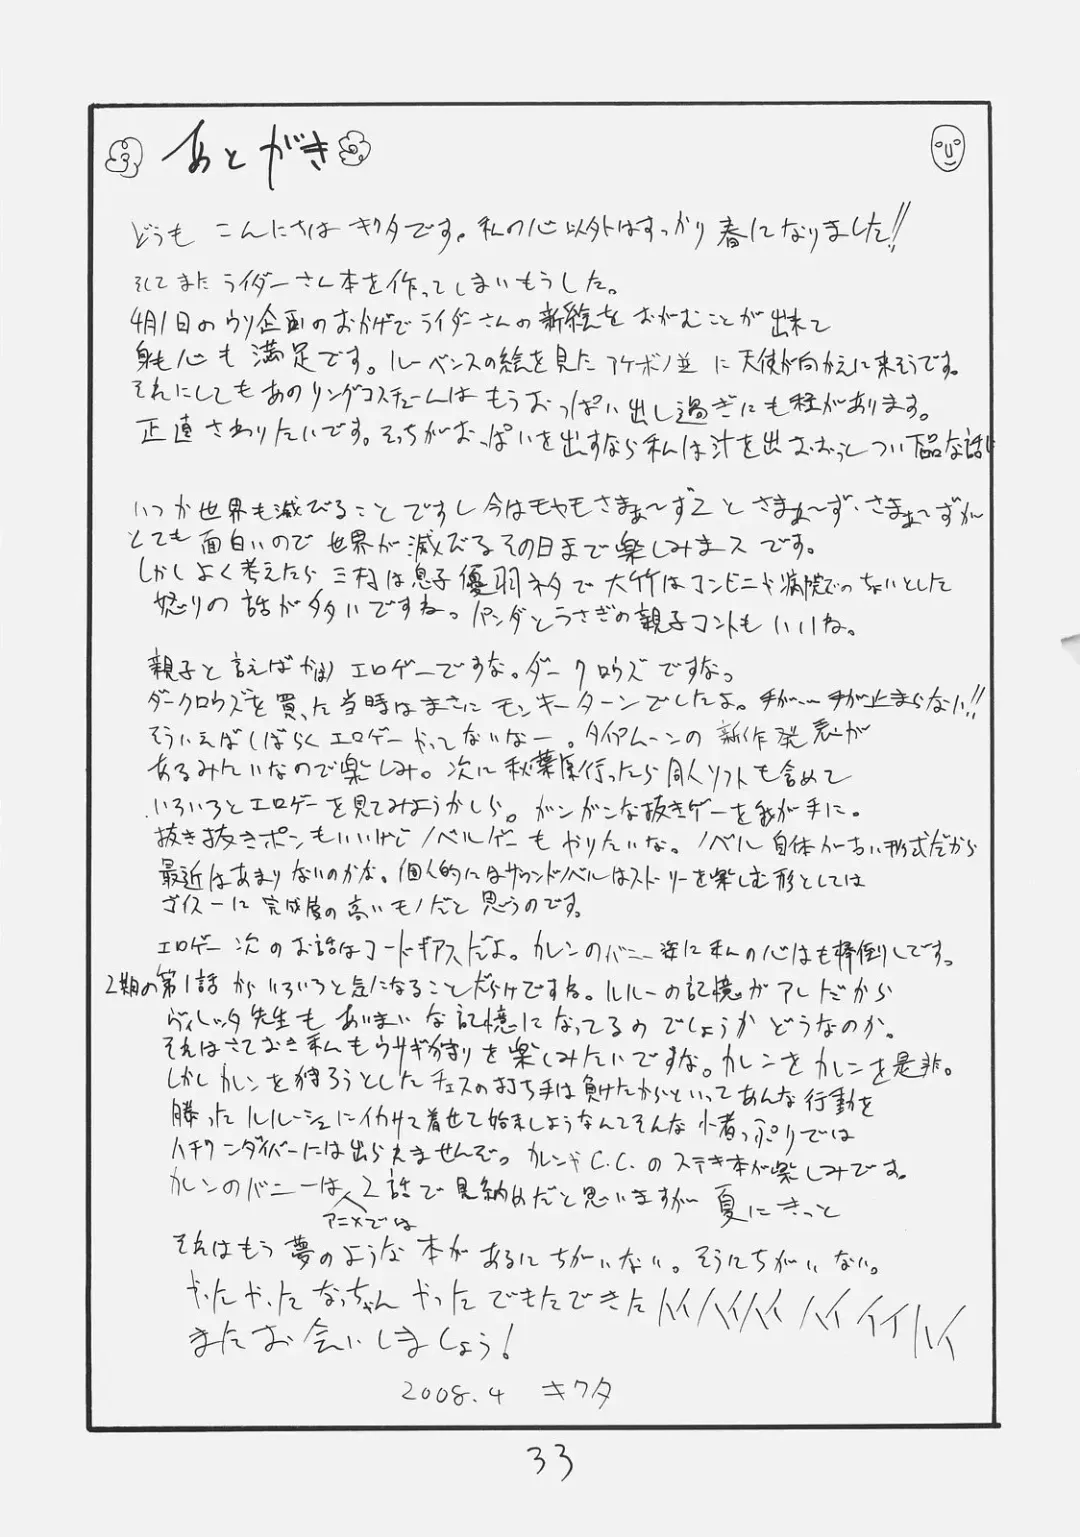 あとがき
どうも こんにちは キクタです。私の心以外はすっかり春になりました!!
そしてまたライダーさん本を作ってしまいもうした。
4月1日のウソ企画のおかげでライダーさんの新絵をおがむことが出来て
身も心も満足です。ルーベンスの絵を見たアケボノ並に天使が向かえに来そうです。
それにしてもあのリングコスチュームはもうおっぱい出し過ぎにも程があります。
正直さわりたいです。そっちがおっぱいを出すなら私は汁を出おおっとつい下品な話に
いつか世界も滅びることですし今はモヤモヤさまぁ〜ず2とさまぁ〜ず・さまぁ〜ずが
とても面白いので世界が滅びるその日まで楽しみまスです。
しかしよく考えたら三村は息子優羽ネタで大竹はコンビニや病院でのちょいとした
怒りの話が多いですね。パンダとうさぎの親子コントもいいね。
親子と言えばやはりエロゲーですな。ダークロウズですな。
ダークロウズを買った当時はまさにモンキーターンでしたよ。手が…手が止まらない!!
そういえばしばらくエロゲーやってないなー。タイアムーンの新作発表が
あるみたいなので楽しみ。次に秋葉原行ったら同人ソフトも含めて
いろいろとエロゲーを見てみようかしら。ガンガンな抜きゲーを我が手に。
抜き抜きポンもいいけどノベルゲーもやりたいな。ノベル自体が古い形式だから
最近はあまりないのかな。個人的にはサウンドノベルはストーリーを楽しむ形としては
ゴイスーに完成度の高いモノだと思うのです。
エロゲー次のお話はコードギアスだよ。カレンのバニー姿に私の心はも棒倒しです。
2期の第1話からいろいろと気になることだらけですね。ルルーの記憶がアレだから
ヴィレッタ先生もあいまいな記憶になってるのでしょうかどうなのか。
それはさておき私もウサギ狩りを楽しみたいですな。カレンをカレンを是非。
しかしカレンを狩ろうとしたチェスの打ち手は負けたからといってあんな行動を
勝ったルルーシュにイカサマ着せて始末しようなんてそんな小者っぷりでは
ハチワンダイバーには出られませんぞ。カレンやC.C.のステキ本が楽しみです。
カレンのバニーは2話で見納めだと思いますが夏にきっと
アニメでは
それはもう夢のような本があるにちがいない。そうにちがいない。
やったやったなっちゃんやったできたできたハイハイハイ ハイ イイハイ
またお会いしましょう!
2008.4 キクタ
33